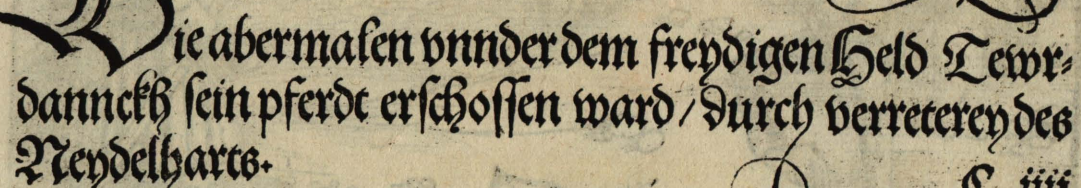 Wie abermalen vnnder dem freydigen Held Tewr⸗
dannckh sein pferdt erschossen ward / durch verreterey des
Neydelharts.